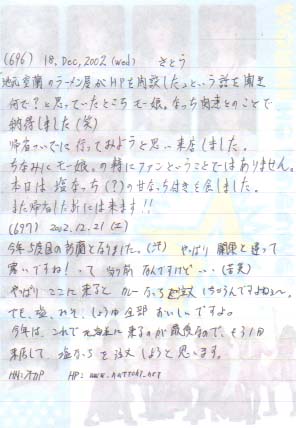 (696) 18. Dec, 2002 (wed) さとう
地元室蘭のラーメン屋がHPを開設したっという話を聞き
何で?と思っていたところ モー娘。なっち関連とのことで
納得しました(笑)
帰省ついでに行ってみようと思い来店しました。
ちなみにモー娘。の特にファンということではありません。
本日は 塩なっち(?)の甘なっち付きを食しました。
また帰省した折には来ます!!
(697) 2002.12.21 (土)
今年5度目の室蘭となりました。(汗) やっぱり 関東と違って
寒いですね!って 当り前 なんですけど・・・(苦笑)
やっぱり ここに来ると カレーなっちを注文しちゃうんですよねぇ〜。
でも、塩、みそ、しょうゆ全部 おいしいですよ。
今年は、これで北海道に来るのが最後なので、もう1回
来店して、塩なっちを注文しようと思います。
HP: www.nattoki.net